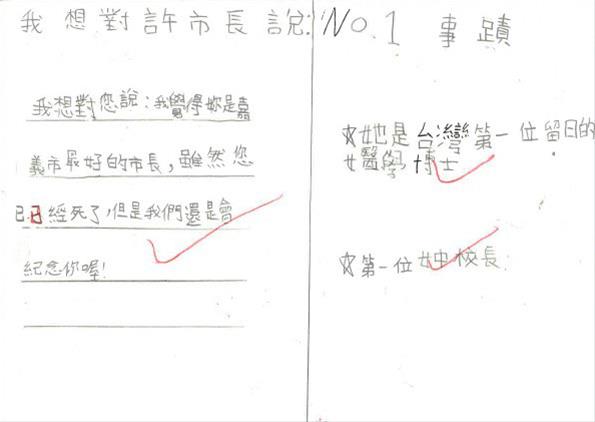 我想對許市長說:
我想對您說:我覺得妳是嘉
義市最好的市長,雖然您
已經死了,但是我們還是會
紀念你喔!
No.1 事蹟
☆她是台灣第一位留日的
女醫學博士
☆第一位女中校長.